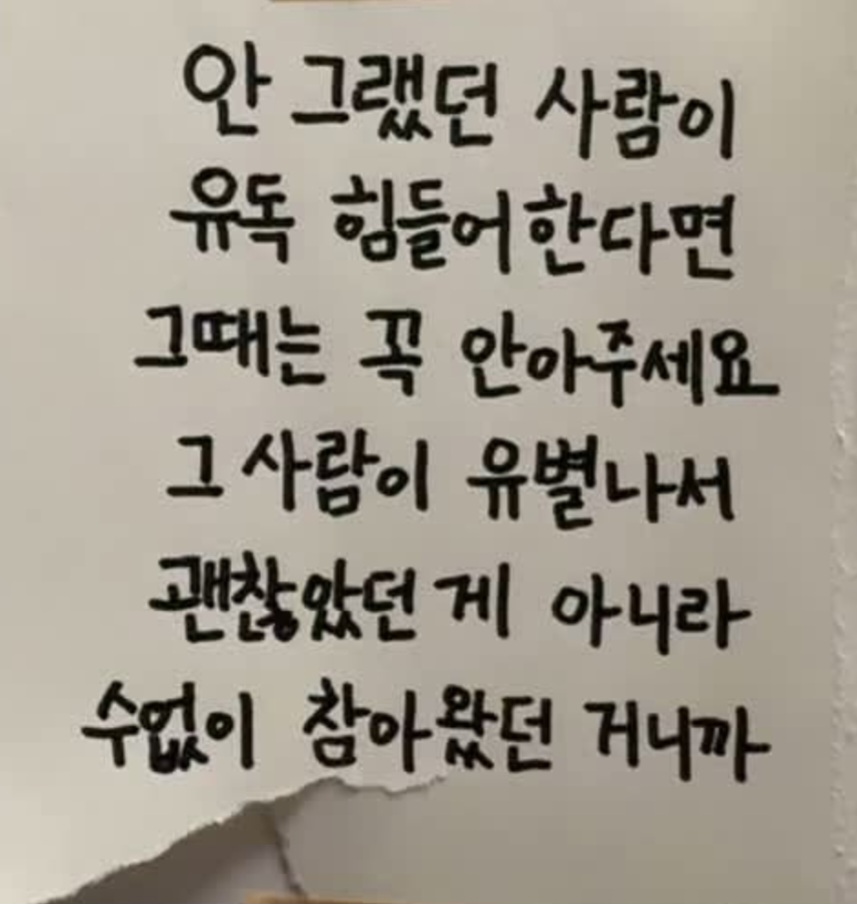 안 그랬던 사람이
유독 힘들어한다면
그때는 꼭 안아주세요
그 사람이 유별나서
괜찮았던 게 아니라
수없이 참아왔던 거니까